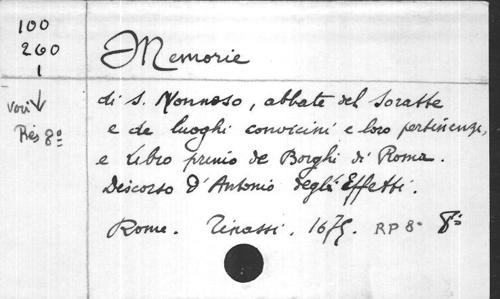 100
260
1
Voir
Rés 8º
Memorie
di S. Nonnoso, abbate del Soratte
e de luoghi convicini e loro pertinenze,
e libro primo de Borghi di Roma.
Discorso d'Antonio degli Effetti.
Rome. Tinassi. 1675. RP 8º 8º